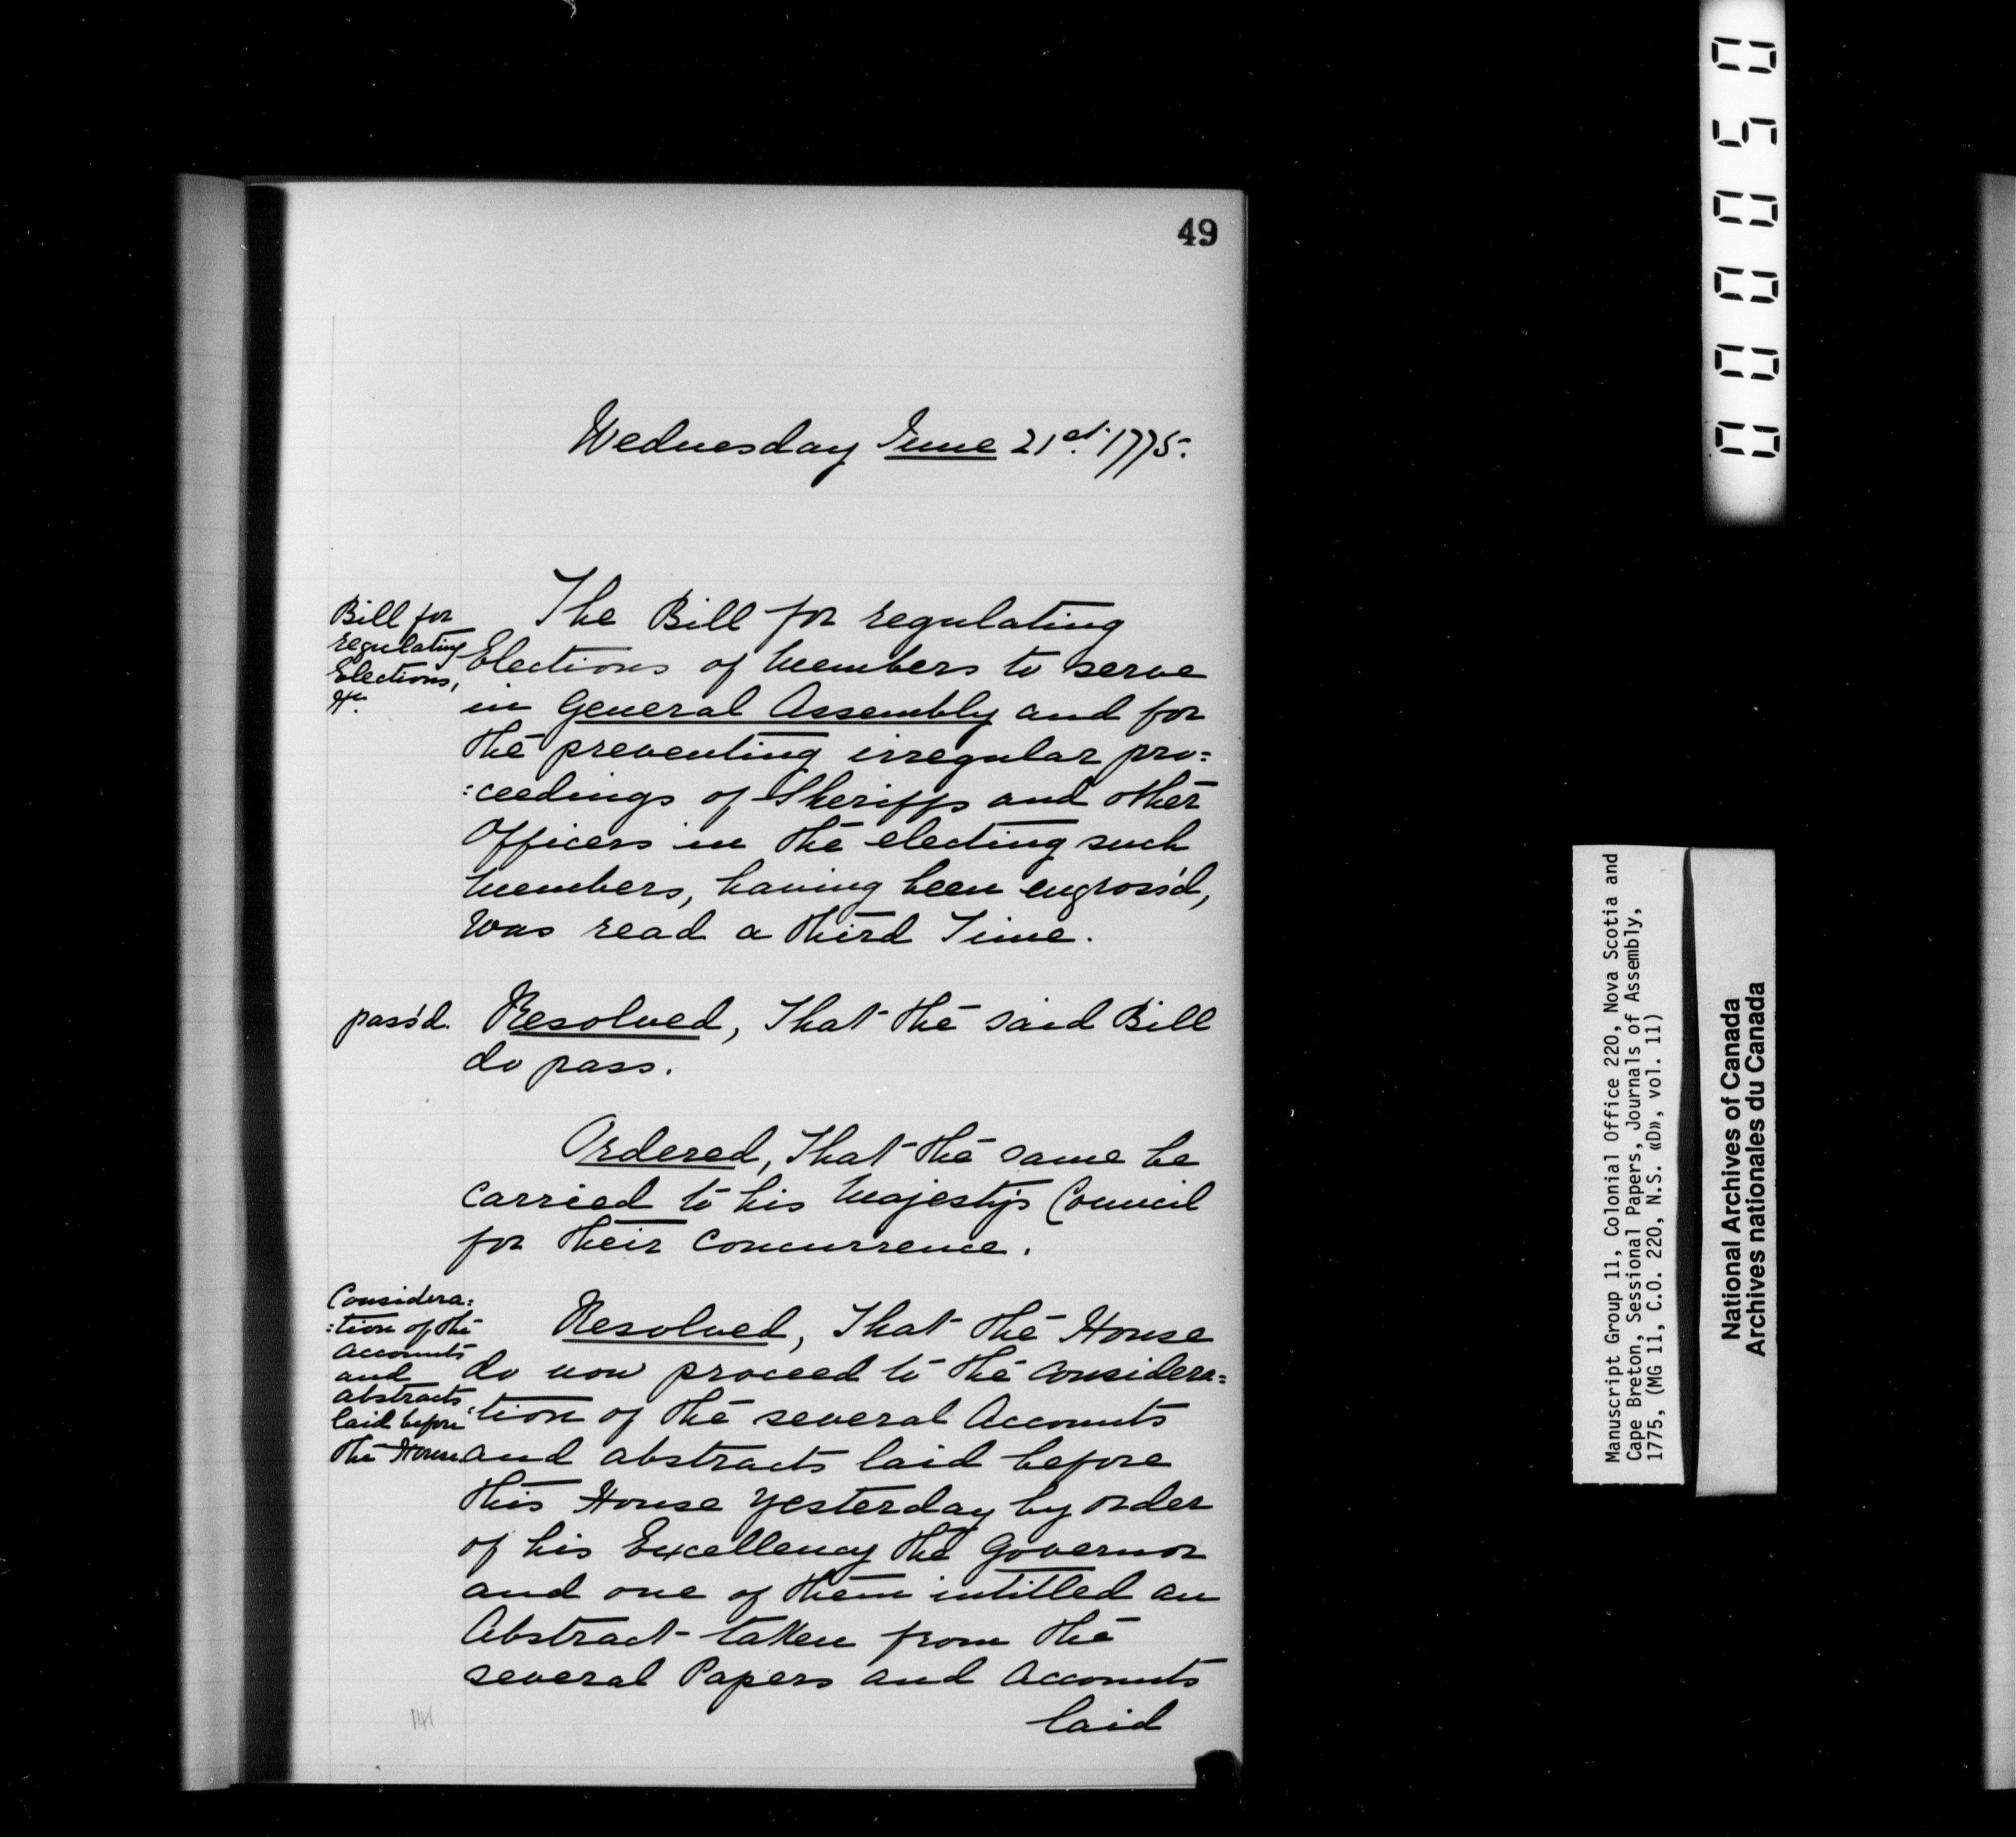 49
Wednesday June 21st. 1775.
Bill for
regulating
Elections,
&c.
The Bill for regulating
Elections of Members to serve
in General Assembly and for
the preventing irregular pro=
=ceedings of Sheriffs and other
Officers in the electing such
Members, having been engross'd,
Was read a third Time.
pass'd.
Resolved, That the said Bill
do pass.
Ordered, That the same be
Carried to his Majesty's Council
for their Concurrence.
Considera=
=tion of the
Accounts
and
abstracts
laid before
the House
Resolved, That the House
do now proceed to the considera=
=tion of the several Accounts
and abstracts laid before
this House yesterday by order
of his Excellency the Governor
and one of them intitled an
Abstract taken from the
several Papers and Accounts
laid
141
000050
Manuscript Group 11, Colonial Office 220, Nova Scotia and
Cape Breton, Sessional Papers, Journals of Assembly,
1775, (MG 11, C.O. 220, N.S. «D», vol. 11)
National Archives of Canada
Archives nationales du Canada